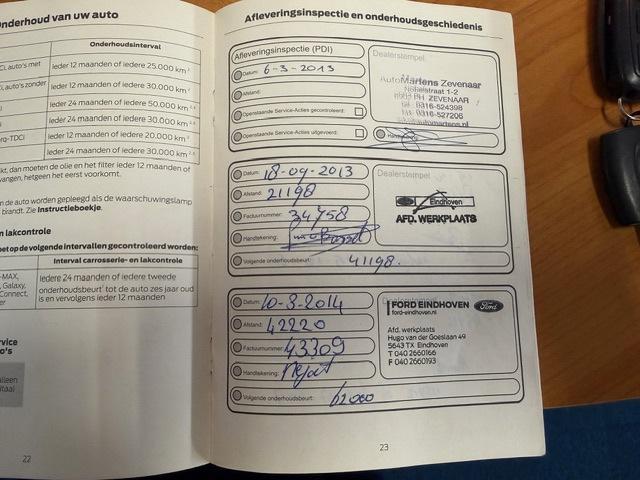 nderhoud van uw auto
Onderhoudsinterval
CI, auto's met
Ieder 12 maanden of iedere 25.000 km
CI, auto's zonder
Ieder 12 maanden of iedere 30.000 km
Ieder 24 maanden of iedere 50.000 km
Ieder 24 maanden of iedere 30.000 km
rq-TDCi
Ieder 12 maanden of iedere 20.000 km
Ieder 24 maanden of iedere 30.000 km
kt, dan moeten de olie en het filter ieder 12 maanden of
vangen, hetgeen het eerst voorkomt.
n de auto worden gepleegd als de waarschuwingslamp
brandt. Zie Instructieboekje.
n lakcontrole
et op de volgende intervallen gecontroleerd worden:
Interval carrosserie- en lakcontrole
-MAX,
Galaxy,
Connect,
er
Iedere 24 maanden of iedere tweede
onderhoudsbeurt tot de auto zes jaar oud
is en vervolgens ieder 12 maanden
vice
o's
alleen
itaal
22
Afleveringsinspectie en onderhoudsgeschiedenis
Afleveringsinspectie (PDI)
Dealerstempel:
Datum: 6-3-2013
Afstand:
Openstaande Service-Acties gecontroleerd:
Openstaande Service-Acties uitgevoerd:
AutoMartens Zevenaar
Nobelstraat 1-2
PH ZEVENAAR
tel. 0316-524398
0316-527206
automartens.nl
Datum: 18-09-2013
Dealerstempel:
Afstand: 21198
Factuurnummer: 34758
Handtekening:
Volgende onderhoudsbeurt: 41198.
Eindhoven
AFD. WERKPLAATS
Datum: 10-3-2014
Afstand: 42220
Factuurnummer: 43309
Handtekening:
Volgende onderhoudsbeurt: 62000
FORD EINDHOVEN
Ford
ford-eindhoven.nl
Afd. werkplaats
Hugo van der Goeslaan 49
5643 TX Eindhoven
T 040 2660166
F 040 2660193
23